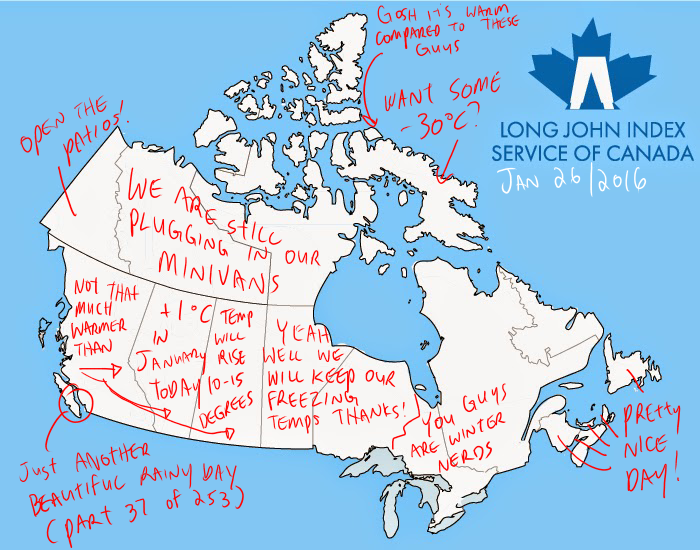 GOSH IT'S WARM
COMPARED TO THESE
GUYS
LONG JOHN INDEX
SERVICE OF CANADA
JAN 26/2016
WANT SOME
-30°C?
OPEN THE
PATIOS!
WE ARE STILL
PLUGGING IN OUR
MINIVANS
NOT THAT
MUCH
WARMER
THAN
+1°C
IN
JANUARY
TODAY
TEMP
WILL
RISE
10-15
DEGREES
YEAH
WELL WE
WILL KEEP OUR
FREEZING
TEMPS THANKS!
YOU GUYS
ARE WINTER
NERDS
PRETTY
NICE
DAY!
JUST ANOTHER
BEAUTIFUL RAINY DAY
(PART 37 OF 253)